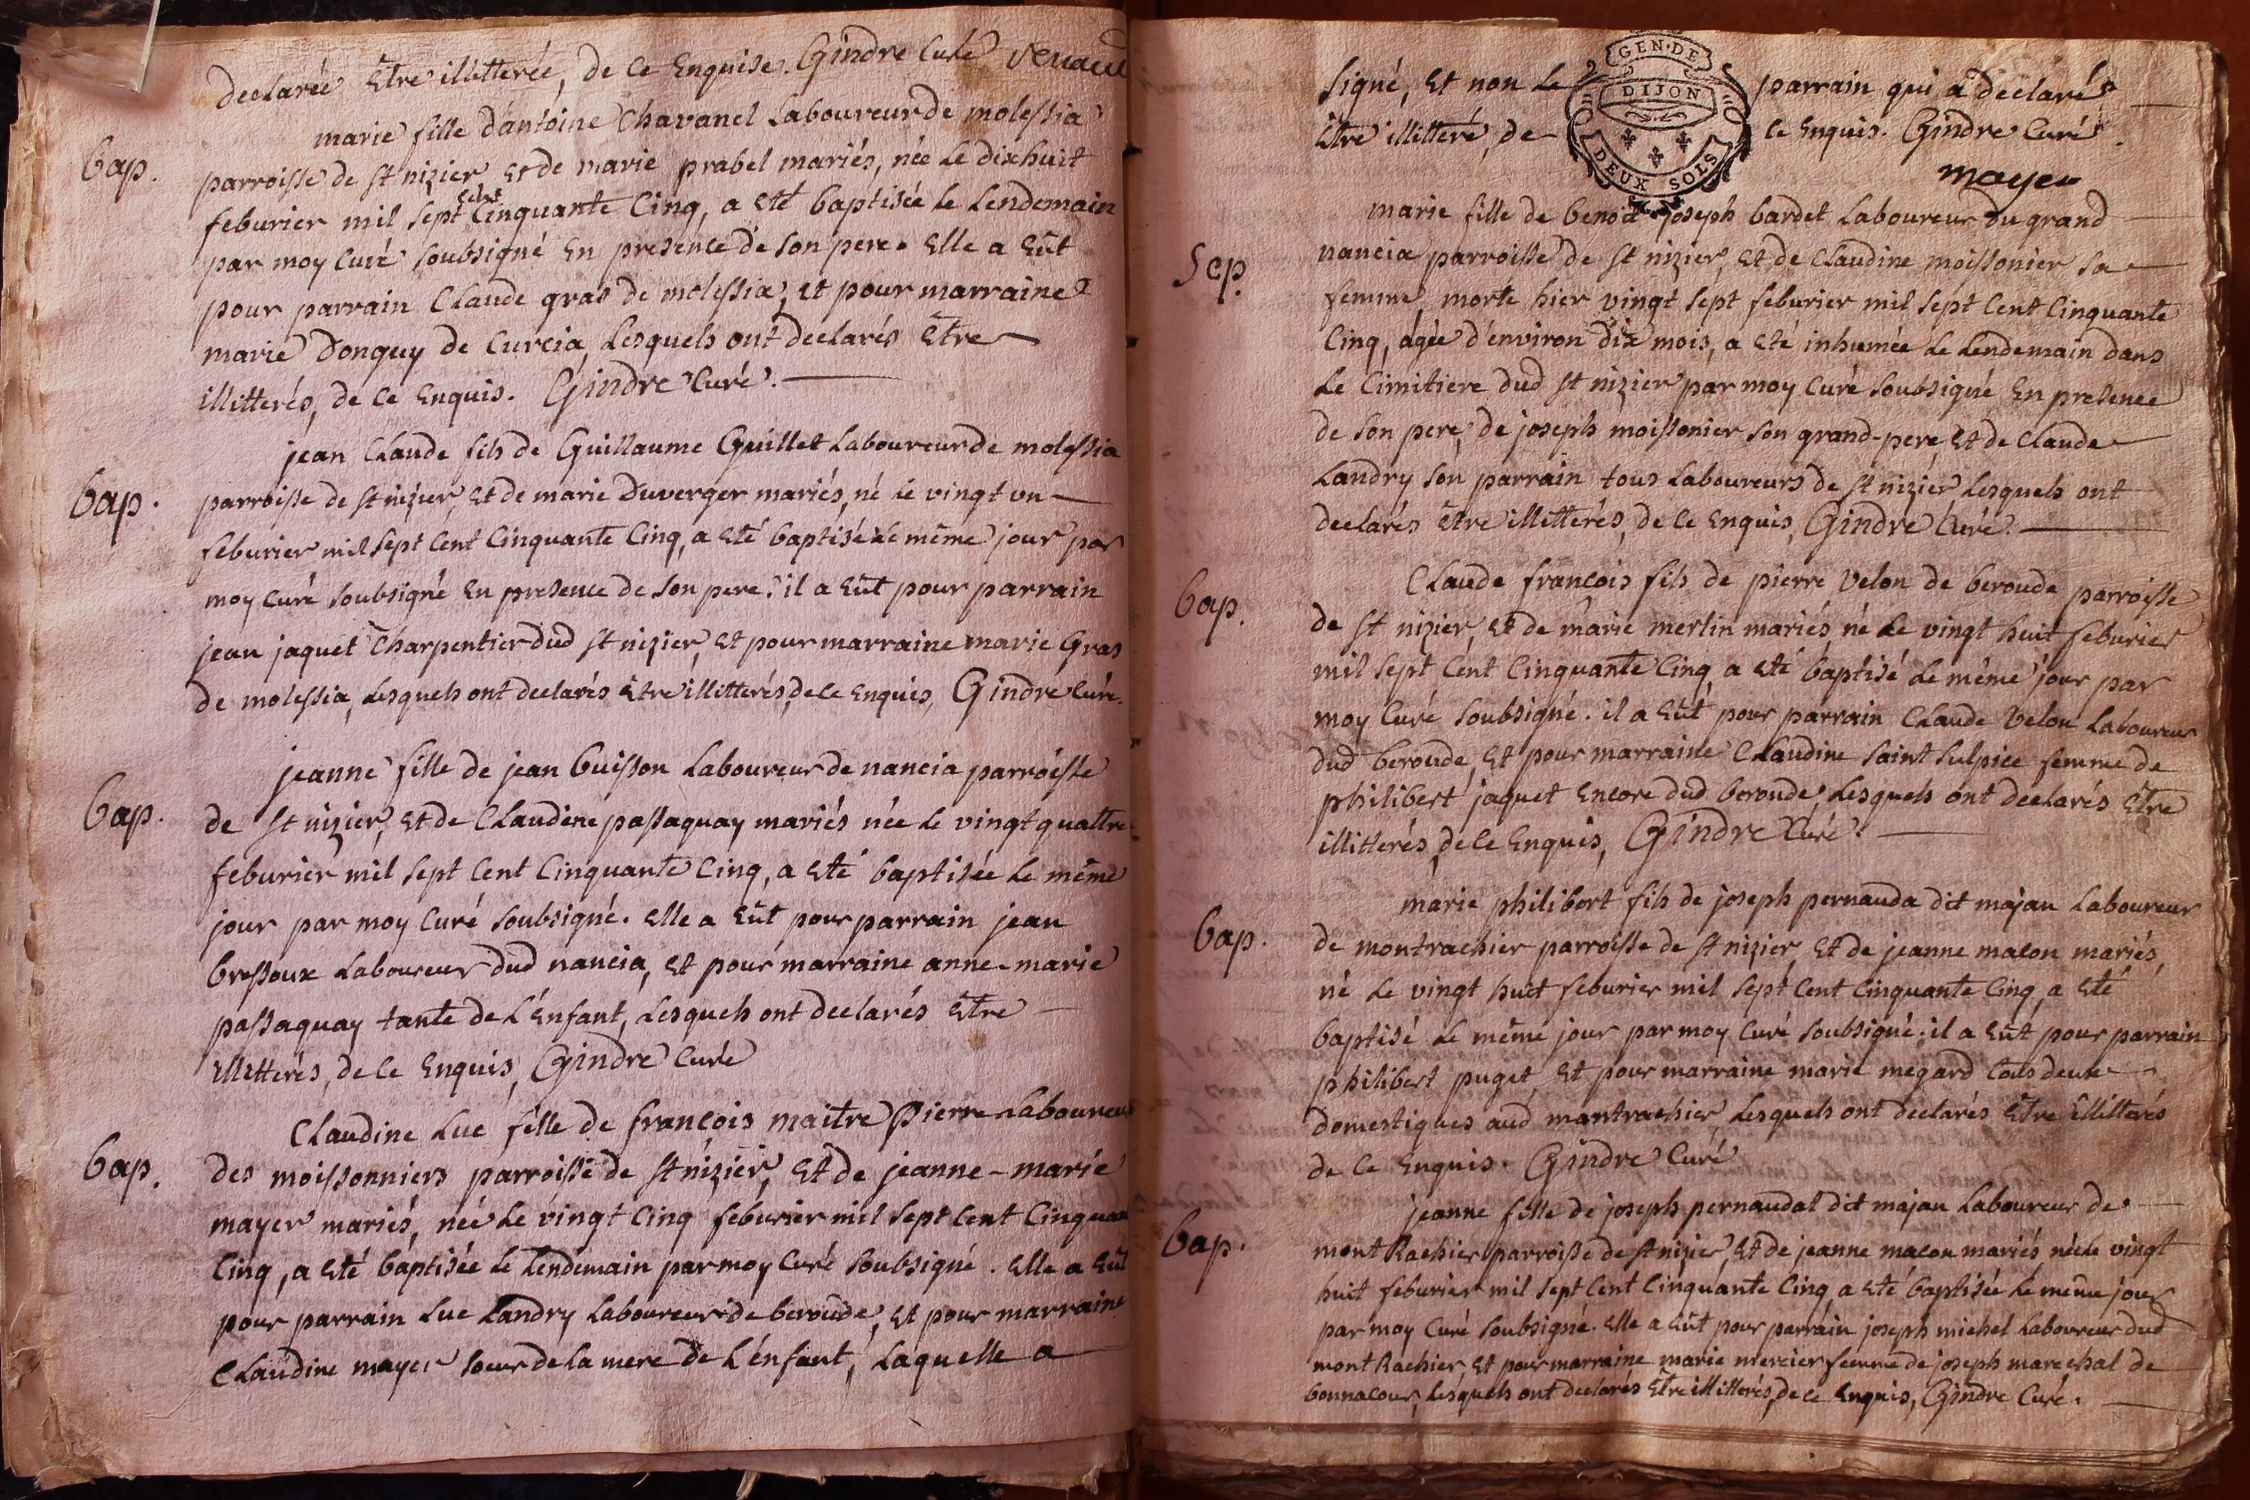 declarée être illitterée, de ce Enquise. Gindre Curé
bap.
marie fille d'antoine Chavanel Laboureur de molessia
parroisse de st nizier et de marie prabel mariés, née le dixhuit
feburier mil sept cent Cinquante Cinq, a eté baptisée le Lendemain
par moy Curé soubsigné En presence de son pere. Elle a eût
pour parrain Claude gras de molessia, et pour marraine
marie Donguy de Curcia, Lesquels ont declarés être
illitterés, de ce Enquis. Gindre Curé.
bap.
jean Claude fils de Guillaume Guillet Laboureur de molessia
parroisse de st nizier, et de marie Duverger mariés, né le vingt vn
feburier mil sept Cent Cinquante Cinq, a eté baptisé le même jour par
moy Curé soubsigné En presence de son pere. il a eût pour parrain
jean jaquet Charpentier dud st nizier, et pour marraine marie Gras
de molessia, Lesquels ont declarés être illitterés, de ce Enquis, Gindre Curé.
bap.
jeanne fille de jean buisson Laboureur de nancia parroisse
de st nizier, et de Claudine passaquay mariés née le vingt quattre
feburier mil sept Cent Cinquante Cinq, a eté baptisée le même
jour par moy Curé soubsigné. Elle a eût pour parrain jean
bressoux Laboureur dud nancia, et pour marraine anne-marie
passaquay tante de L'Enfant, Lesquels ont declarés être
illitterés, de ce Enquis, Gindre Curé
bap.
Claudine Luc fille de françois maitre Pierre Laboureur
des moissonniers parroisse de st nizier, et de jeanne-marie
mayer mariés, née le vingt Cinq feburier mil sept Cent Cinquante
Cinq, a eté baptisée le Lendemain par moy Curé soubsigné. Elle a eût
pour parrain Luc Landry Laboureur de beroude, et pour marraine
Claudine mayer soeur de la mere de L'énfant, Laquelle a
signé, et non le parrain qui a declaré
être illitteré, de ce Enquis. Gindre Curé.
GEN. DE
DIJON
DEUX SOLS
mayer
Sep.
marie fille de benoit joseph bardet Laboureur du grand
nancia parroisse de st nizier, et de Claudine moissonier sa
femme, morte hier vingt sept feburier mil sept Cent Cinquante
Cinq, agée d'environ dix mois, a eté inhumée le Lendemain dans
le Cimitiere dud st nizier par moy Curé soubsigné En presence
de son pere, de joseph moissonier son grand-pere, et de Claude
Landry son parrain tous Laboureurs de st nizier Lesquels ont
declarés être illitterés, de ce Enquis, Gindre Curé.
bap.
Claude françois fils de pierre Velon de beroude parroisse
de st nizier, et de marie merlin mariés né le vingt huit feburier
mil sept Cent Cinquante Cinq a eté baptisé le même jour par
moy Curé soubsigné. il a eût pour parrain Claude Velon Laboureur
dud beroude, et pour marraine Claudine saint sulpice femme de
philibert jaquet Encore dud beroude, Lesquels ont declarés être
illitterés, de ce Enquis, Gindre Curé.
bap.
marie philibert fils de joseph pernauda dit majan Laboureur
de montrachier parroisse de st nizier, et de jeanne macon mariés,
né le vingt huit feburier mil sept Cent Cinquante Cinq, a eté
baptisé le même jour par moy Curé soubsigné; il a eût pour parrain
philibert puget, et pour marraine marie megard tous deux
domestiques aud mantrachier, Lesquels ont declarés être illitterés
de ce Enquis. Gindre Curé
bap.
jeanne fille de joseph pernaudat dit majan Laboureur de
mont Rachier parroisse de st nizier, et de jeanne macon mariés née le vingt
huit feburier mil sept Cent Cinquante Cinq a eté baptisée le même jour
par moy Curé soubsigné. Elle a eût pour parrain joseph michel Laboureur dud
mont Rachier, et pour marraine marie mercier femme de joseph marechal de
bonnacour, Lesquels ont declarés être illitterés, de ce Enquis, Gindre Curé.